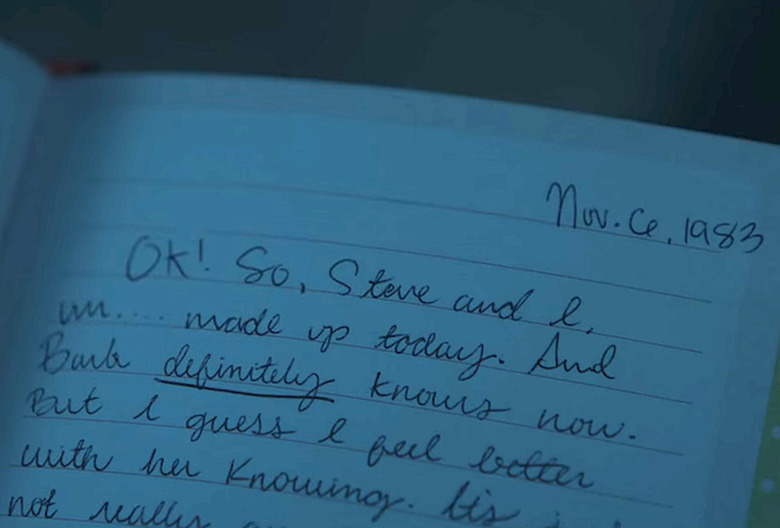 Nov. 6, 1983
OK! So, Steve and I,
um.... made up today. And
Barb definitely knows now.
But I guess I feel better
with her knowing. Its
not really